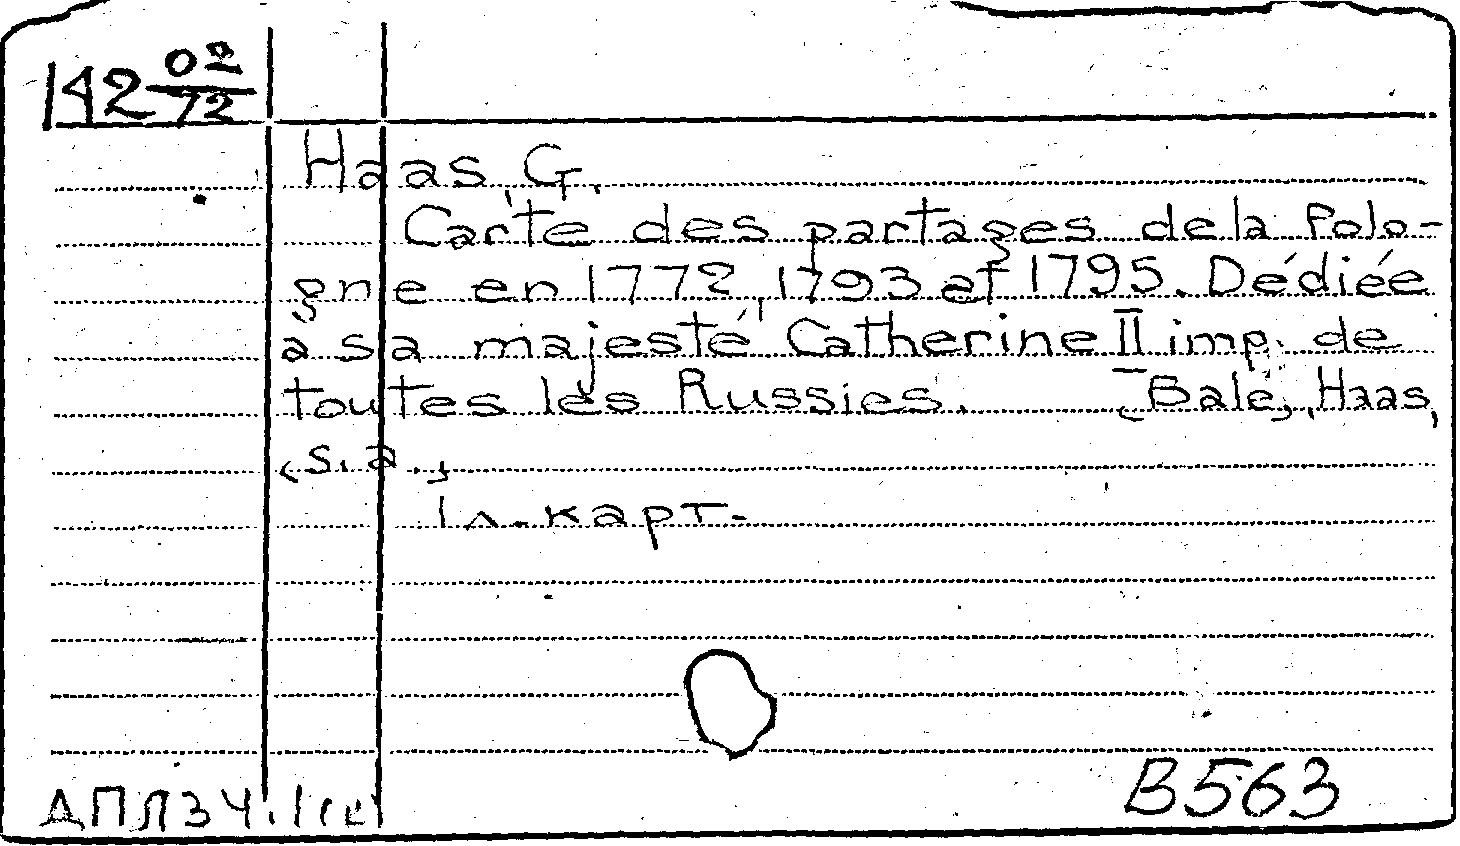 142 02/72
Haas, G.
Carte des partages de la Polo-
gne en 1772, 1793 et 1795. Dédiée
à sa majesté Catherine II imp. de
toutes les Russies. (Bale), Haas,
(s. a.)
1 л. карт.
В563